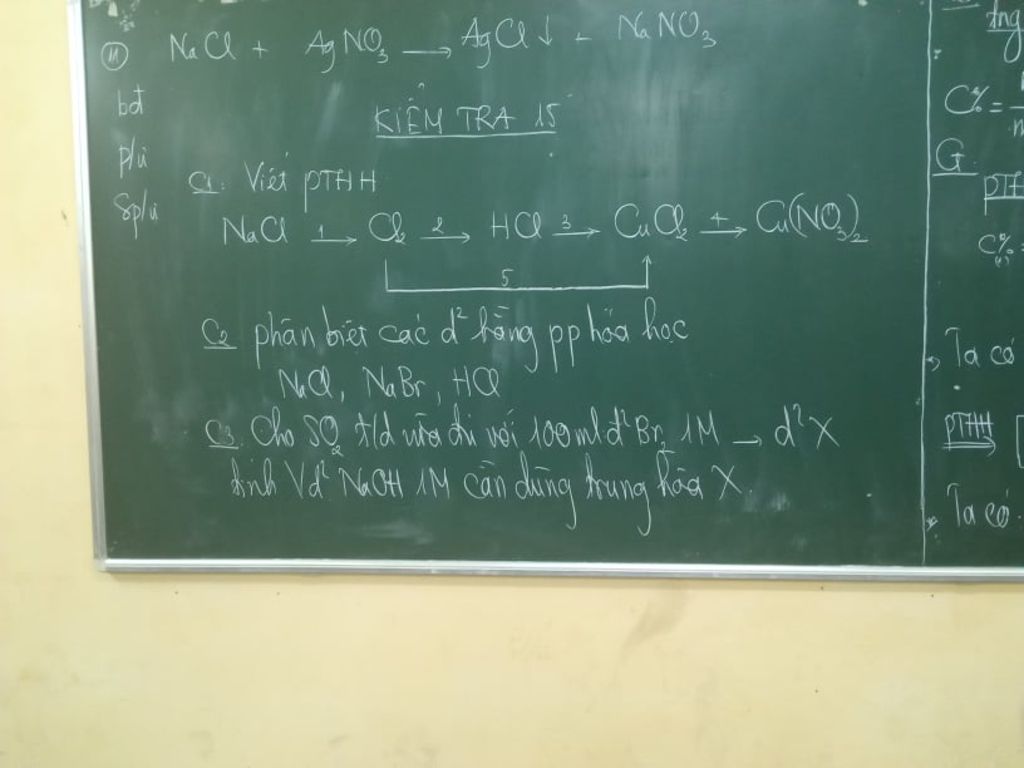 NaCl + AgNO3 → AgCl↓ + NaNO3
(M)
bđ
p/ứ
Sp/ứ
KIỂM TRA 15'
C1: Viết PTHH
NaCl —1→ Cl2 —2→ HCl —3→ CuCl2 —4→ Cu(NO3)2
5
C2 phân biệt các d² bằng pp hóa học
NaCl, NaBr, HCl
C3. Cho SO2 t/d vừa đủ với 100ml d² Br2 1M → d² X
tính Vd² NaOH 1M cần dùng trung hòa X
C% =
G
PTH
C%
Ta có
PTHH
Ta có